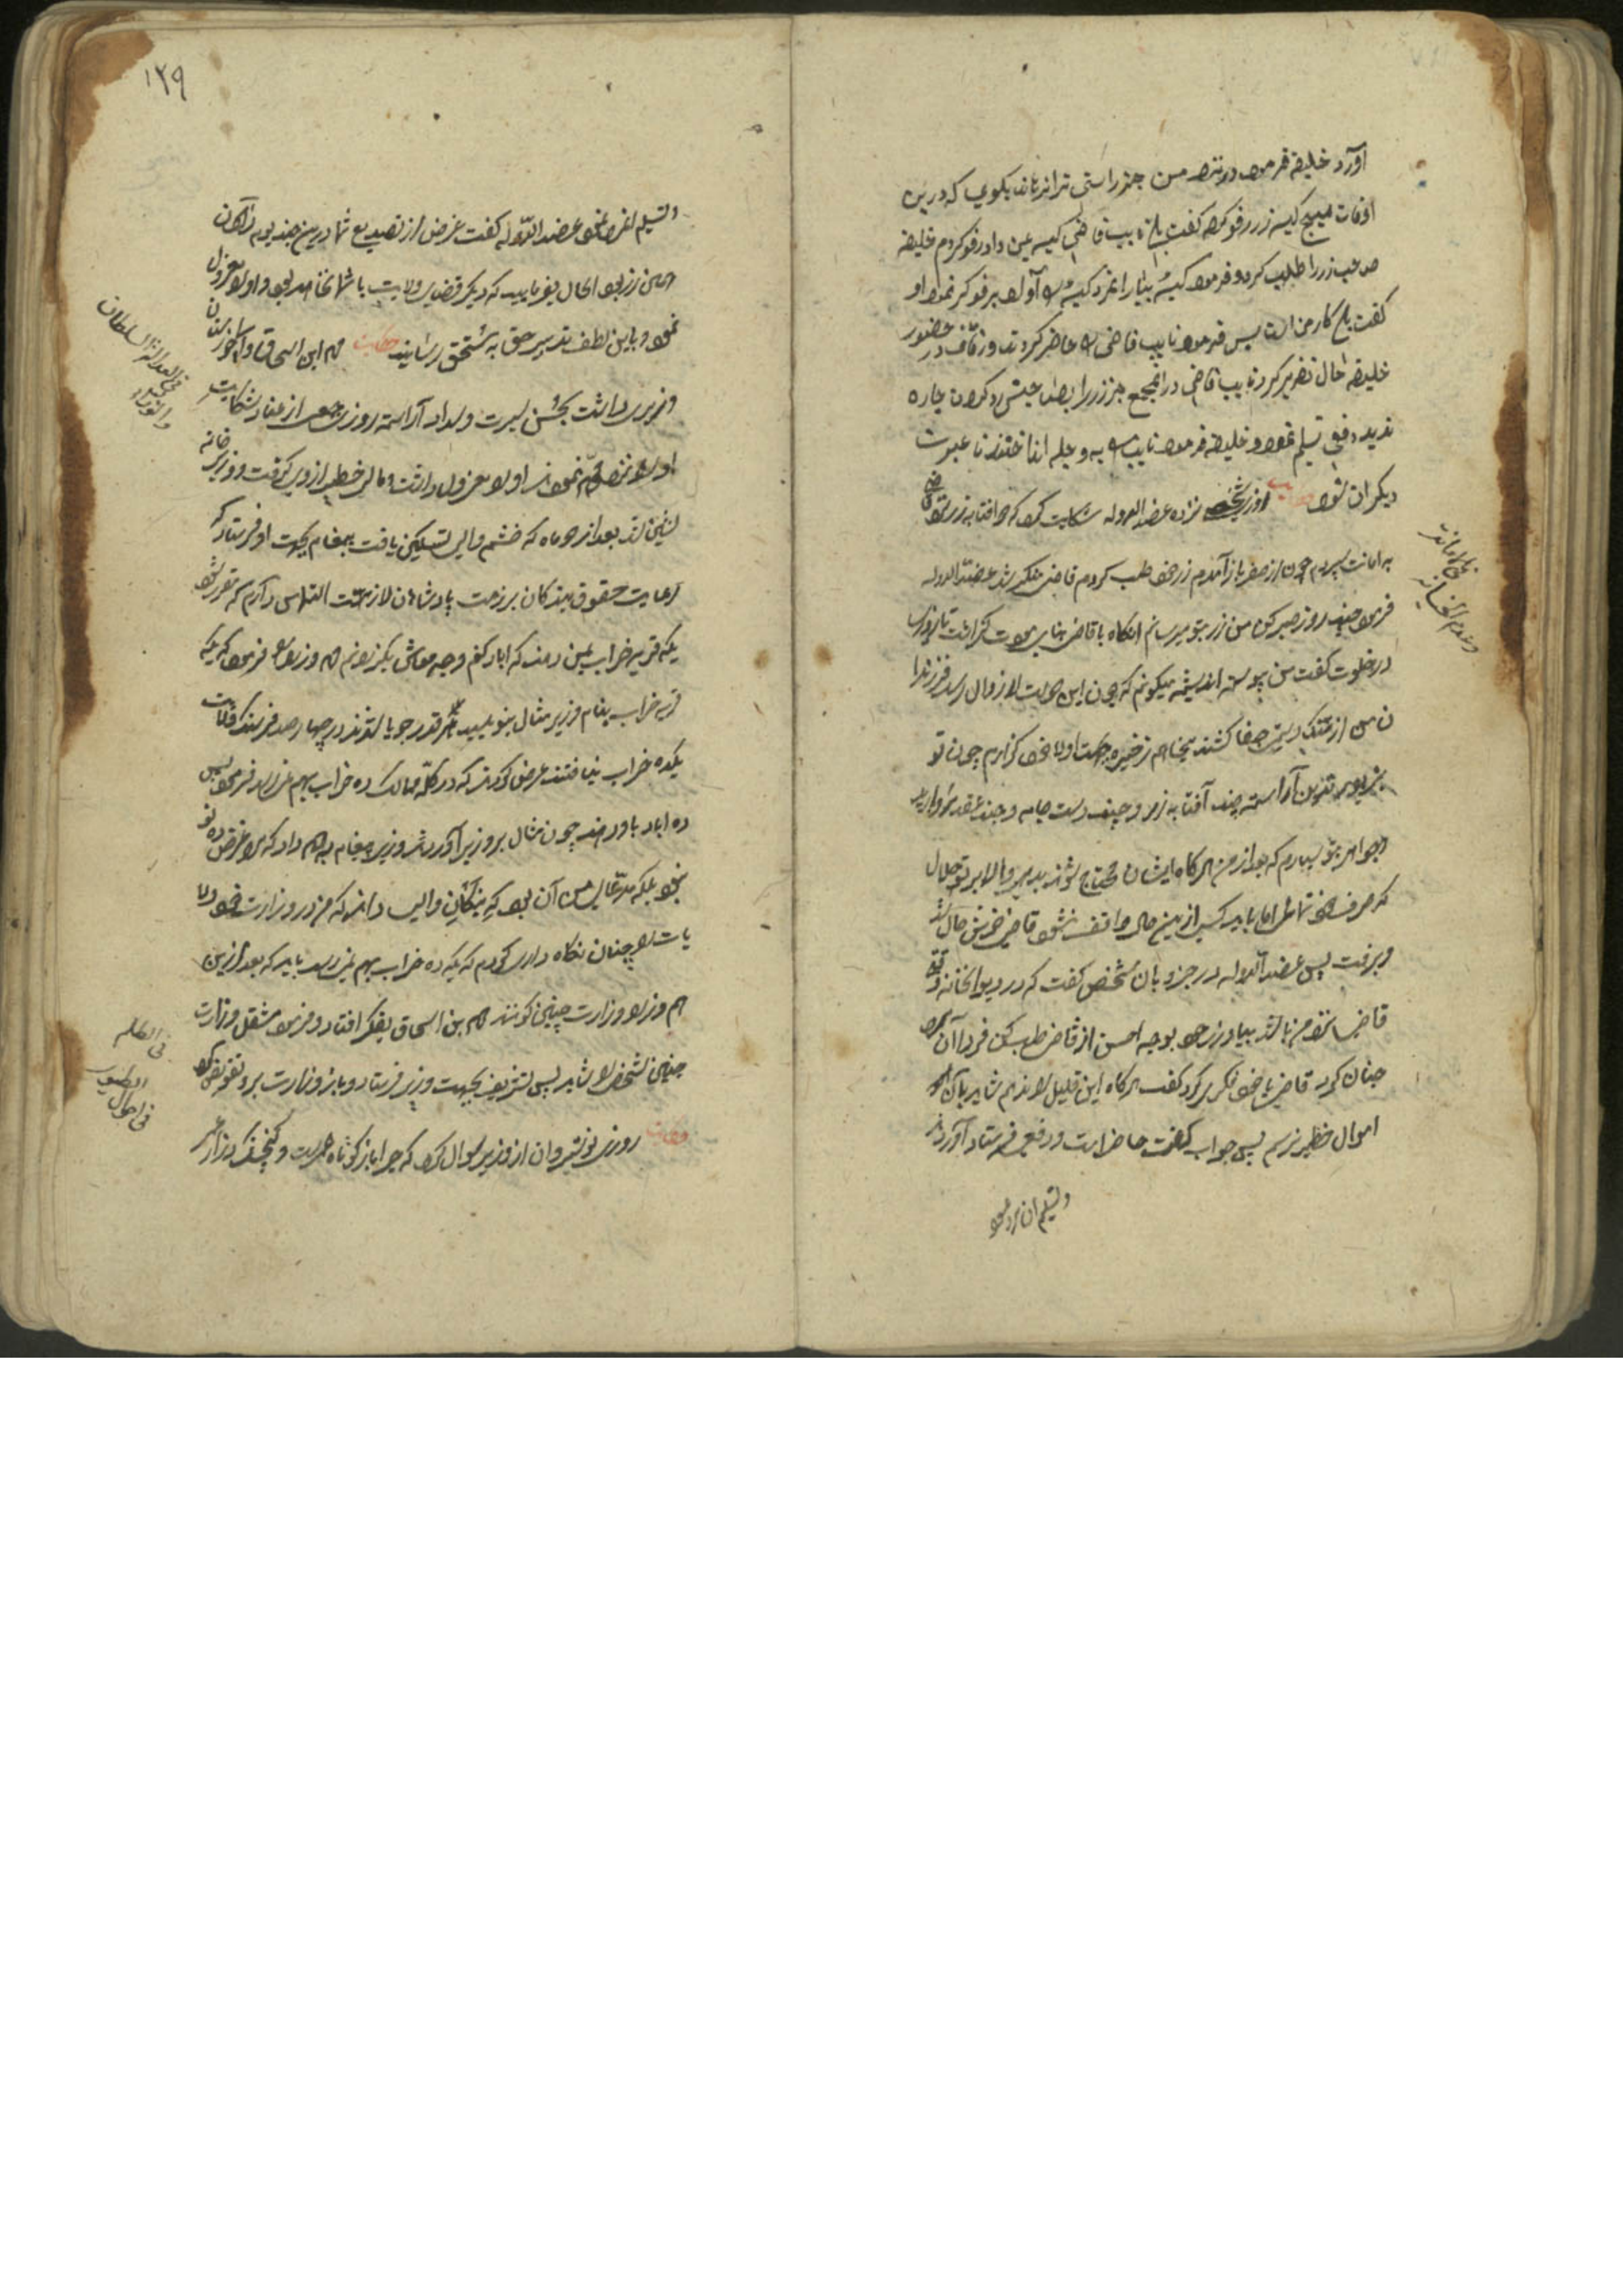 آورد خلیفه فرمود در نزد من جز راستی ترا نرهاند بگوی که درین
اوقات هیچ کیسه زر رفو کرده گفت بلی نایب قاضی کیسه بمن داد رفو کردم خلیفه
صاحب زر را طلب کرد و فرمود کیسه بیار رفوگر نمود او
گفت بلی کار من است پس فرمود نایب قاضی را حاضر کردند و رفاف در حضور
خلیفه حال تقریر کرد نایب قاضی در آن مجمع جز زر را بصاحبش رد کردن چاره
ندید دفعی تسلیم نمود و خلیفه فرمود نایب را انداختند تا عبرت
دیگران شود حکایت روزی شخصی نزد عضد الدوله شکایت کرد که دو آفتابه زر نزد قاضی
به امانت سپردم چون از سفر باز آمدم زر خود طلب کردم قاضی منکر شد عضد الدوله
فرمود چند روز صبر کن من زر بتو میرسانم آنگاه با قاضی گذاشت تا روزی
در خلوت گفت من پیوسته اندیشه میکنم که چون این دولت را زوال رسد فرزندان
من از جفا کشند میخواهم ذخیره جهت اولاد خود گذارم چون تو
بزیور تدین آراسته چند آفتابه زر و چند دست جامه و چند عقد مروارید
و جواهر بتو سپارم که بعد از من هرگاه ایشان محتاج شوند بدهی والا بر تو حلال
که صرف خود نمائی اما باید کسی ازین حال واقف نشود قاضی خوش حال شد
و برفت پس عضد الدوله در جزو بآن شخص گفت که در دیوانخانه وقتی
قاضی نزد من باشد بیا و زر خود بوجه احسن از قاضی طلب کن فردا آن مرد
چنان کرد قاضی با خود فکر کرد گفت هرگاه این قلیل را ندهم شاید بآن
اموال خطیر نرسم پس جواب گفت حاضر است و رفیع فرستاد آوردند
و تسلیم آن مرد نمود
در امانت
و عدم الخیانه
۱۲۹
و تسلیم نمود عضد الدوله گفت غرض از تصدیع شما درین چند یوم رد کردن
این زر بود الحال بفرمایید که دیگر قضای ولایت با شما نخواهد بود و او را معزول
نمود و باین لطف تدبیر حق به مستحق رسانید حکایت ابن اسحاق والی خوزستان
وزیری داشت بحسن سیرت و سداد آراسته روزی جمعی از عناد شکایت
او را نزد نمودند او را معزول داشت و مال خطیر از وی گرفت و وزیر خانه
نشین شد بعد از دو ماه که خشم والی تسکین یافت پیغام بجهت او فرستاد که
رعایت حقوق بندگان بر ذمت پادشاهان لازم است التماس دارم که مقرر شود
یک قریه خراب بمن دهند که آباد کنم و وجه معاش بگذرانم وزرا را فرمود که یک
قریه خراب بنام وزیر مثال بنویسید هر قدر جویا شدند در چهار صد فرسنگ ولایت
یک ده خراب نیافتند عرض کردند که در کل ممالک ده خراب بهم نمیرسد فرمود پس
ده آباد باو دهند چون مثال بر وزیر آوردند وزیر پیغام داد که مرا غرض ده
نبود بلکه مدعای من آن بود که بندگان والی دانند که من در وزارت خود ولا
یات را چنان نگاه داری کردم که یک ده خراب بهم نمیرسد باید که بعد ازین
هم وزرا وزارت چنین کنند بن اسحاق بفکر افتاد و فرمود شغل وزارت
چنین شخص را شاید پس تشریف بجهت وزیر فرستاد و باز وزارت برو تفویض کرد
حکایت روزی نوشیروان از وزیر سوال کرد که چرا باز کوتاه عمر است و گنجشک دراز عمر
فی العدالة السلطان
والوزراء
فی الظلم
فی احوال
الطیور